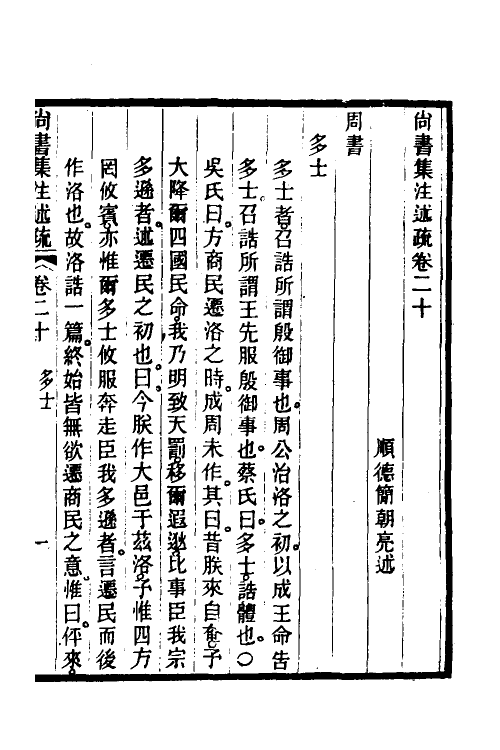 尙書集注述疏卷二十
順德簡朝亮述
周書
多士
多士者。召誥所謂殷御事也。周公治洛之初。以成王命告
多士。召誥所謂王先服殷御事也。蔡氏曰。多士。誥體也。〇
吳氏曰。方商民遷洛之時。成周未作。其曰。昔朕來自奄。予
大降爾四國民命。我乃明致天罰。移爾遐逖。比事臣我宗
多遜者。述遷民之初也。曰。今朕作大邑于茲洛。予惟四方
罔攸賓。亦惟爾多士攸服奔走臣我多遜者。言遷民而後
作洛也。故洛誥一篇。終始皆無欲遷商民之意。惟曰。伻來。
尙書集注述疏 卷二十 多士 一